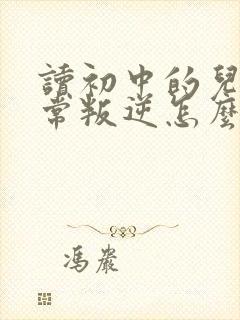 讀初中的兒
常叛逆怎麼
馮巖